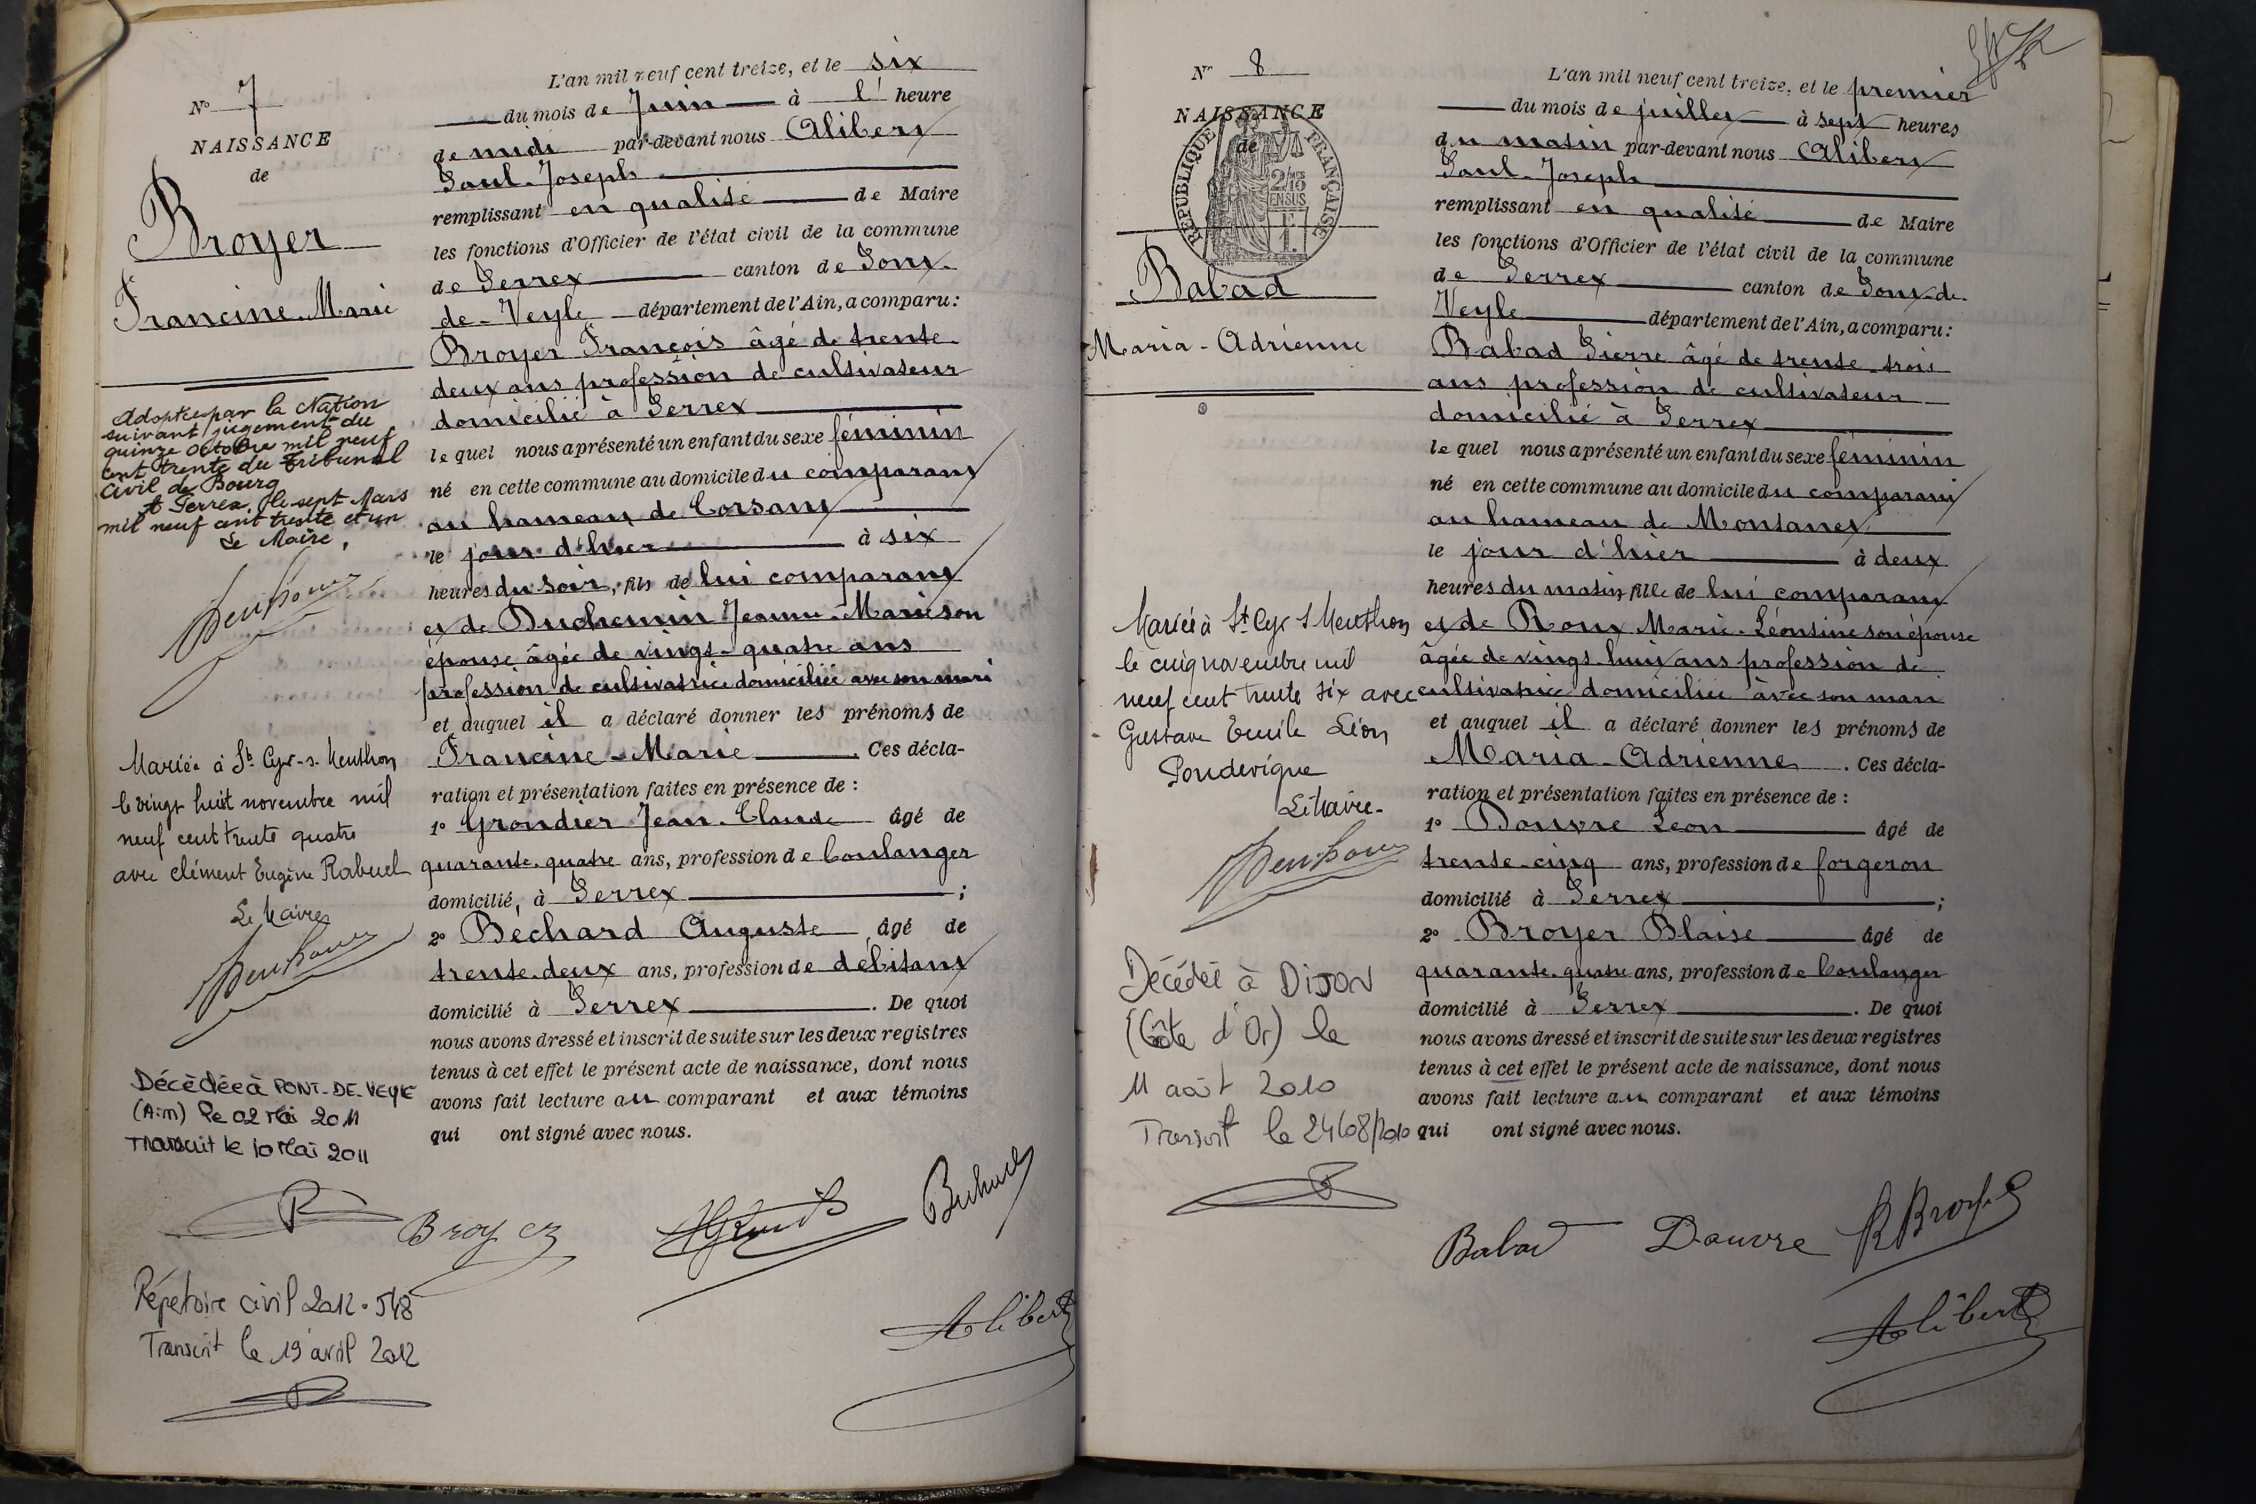 N° 7
NAISSANCE
de
Broyer
Francine-Marie
Adoptée par la Nation
suivant jugement du
quinze octobre mil neuf
cent trente du Tribunal
Civil de Bourg
A Perrex, le sept Mars
mil neuf cent trente et un
Le Maire,
Mariée à St Cyr-s-Menthon
le vingt huit novembre mil
neuf cent trente quatre
avec Clément Eugène Rabuel
Le Maire
Décédée à PONT-DE-VEYLE
(Ain) le 02 Mai 2011
Transcrit le 10 Mai 2011
Répertoire civil 2012.548
Transcrit le 19 avril 2012
L'an mil neuf cent treize, et le six
du mois de Juin à l' heure
de midi par-devant nous Alibert
Paul-Joseph
remplissant en qualité de Maire
les fonctions d'Officier de l'état civil de la commune
de Perrex canton de Pont-
de-Veyle département de l'Ain, a comparu:
Broyer François âgé de trente
deux ans profession de cultivateur
domicilié à Perrex
lequel nous a présenté un enfant du sexe féminin
né en cette commune au domicile du comparant
au hameau de Corsant
le jour d'hier à six
heures du soir, fils de lui comparant
et de Duchemin Jeanne-Marie son
épouse âgée de vingt-quatre ans
profession de cultivatrice domiciliée avec son mari
et auquel il a déclaré donner les prénoms de
Francine-Marie. Ces décla-
ration et présentation faites en présence de :
1° Grondier Jean-Claude âgé de
quarante-quatre ans, profession de boulanger
domicilié, à Perrex ;
2° Bechard Auguste âgé de
trente-deux ans, profession de débitant
domicilié à Perrex. De quoi
nous avons dressé et inscrit de suite sur les deux registres
tenus à cet effet le présent acte de naissance, dont nous
avons fait lecture au comparant et aux témoins
qui ont signé avec nous.
Broyer
Alibert
N° 8
NAISSANCE
de
RÉPUBLIQUE FRANÇAISE
Babad
Maria-Adrienne
Mariée à St Cyr s Menthon
le cinq novembre mil
neuf cent trente six avec
Gustave Emile Léon
Pondevigne
Le Maire-
Décédée à DIJON
(Côte d'Or) le
11 août 2010
Transcrit le 24/08/2010
L'an mil neuf cent treize, et le premier
du mois de juillet à sept heures
du matin par-devant nous Alibert
Paul-Joseph
remplissant en qualité de Maire
les fonctions d'Officier de l'état civil de la commune
de Perrex canton de Pont-de-
Veyle département de l'Ain, a comparu:
Babad Pierre âgé de trente-trois
ans profession de cultivateur
domicilié à Perrex
lequel nous a présenté un enfant du sexe féminin
né en cette commune au domicile du comparant
au hameau de Montanet
le jour d'hier à deux
heures du matin fille de lui comparant
et de Roux Marie-Léontine son épouse
âgée de vingt-huit ans profession de
cultivatrice domiciliée avec son mari
et auquel il a déclaré donner les prénoms de
Maria-Adrienne. Ces décla-
ration et présentation faites en présence de :
1° Douvre Léon âgé de
trente-cinq ans, profession de forgeron
domicilié à Perrex ;
2° Broyer Blaise âgé de
quarante-quatre ans, profession de boulanger
domicilié à Perrex. De quoi
nous avons dressé et inscrit de suite sur les deux registres
tenus à cet effet le présent acte de naissance, dont nous
avons fait lecture au comparant et aux témoins
qui ont signé avec nous.
Babad Douvre Broyer
Alibert